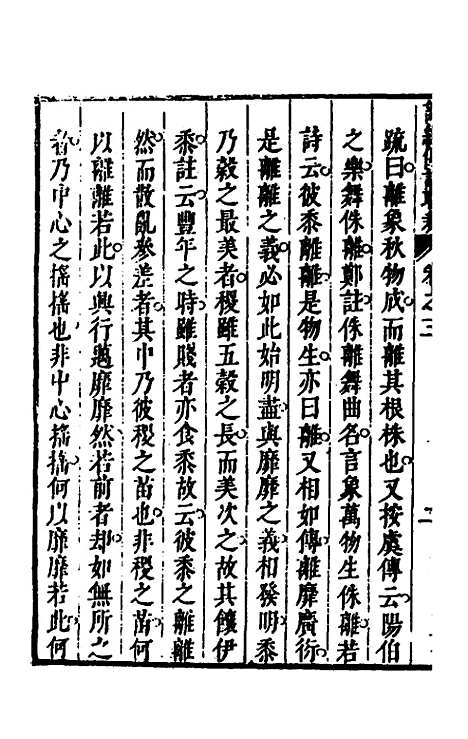 卷之三
二
疏曰離象秋物成而離其根株也又按虞傳云陽伯
之樂舞侏離鄭註侏離舞曲名言象萬物生侏離若
詩云彼黍離離是物生亦曰離又相如傳離靡廣衍
是離離之義必如此始明盡與靡靡之義相發明黍
乃穀之最美者稷雖五穀之長而美次之故其饟伊
黍註云豐年之時雖賤者亦食黍故云彼黍之離離
然而散亂參差者其中乃彼稷之苗也非稷之苗何
以離離若此以興行邁靡靡然若前者却如無所之
者乃中心之搖搖也非中心搖搖何以靡靡若此何